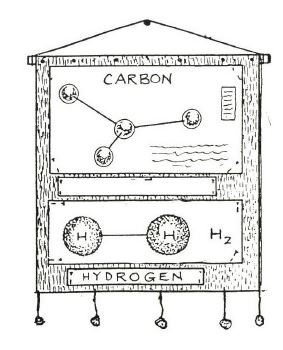 CARBON
H H H₂
HYDROGEN